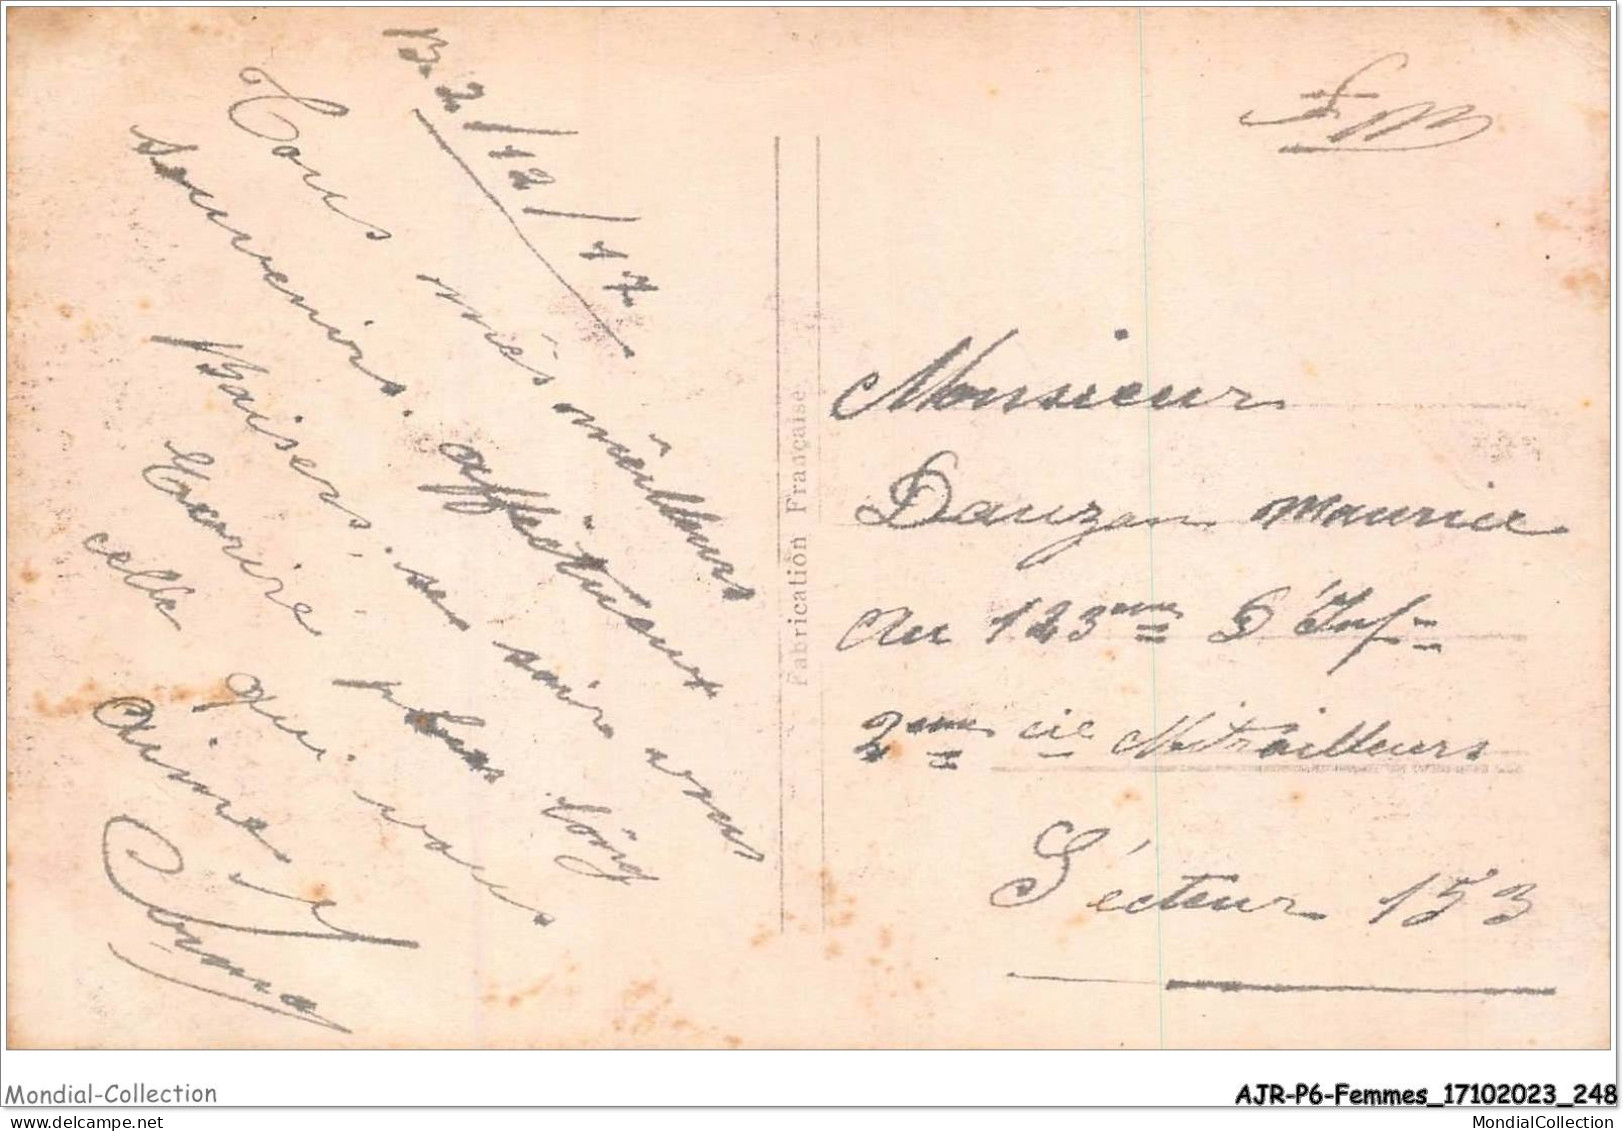 B. 2/12/17
Tous més mêilleurs
souvenirs. affectueux
Baisers. se soir vous
Ecorire plus long
celle qui. vous
aime
Fabrication Française
FM
Monsieur
Dauzan Maurice
Au 123ème D'Inf
2ème cie Mitrailleurs
Sécteur 153
Mondial-Collection
AJR-P6-Femmes_17102023_248
Mondial-Collection
MondialCollection